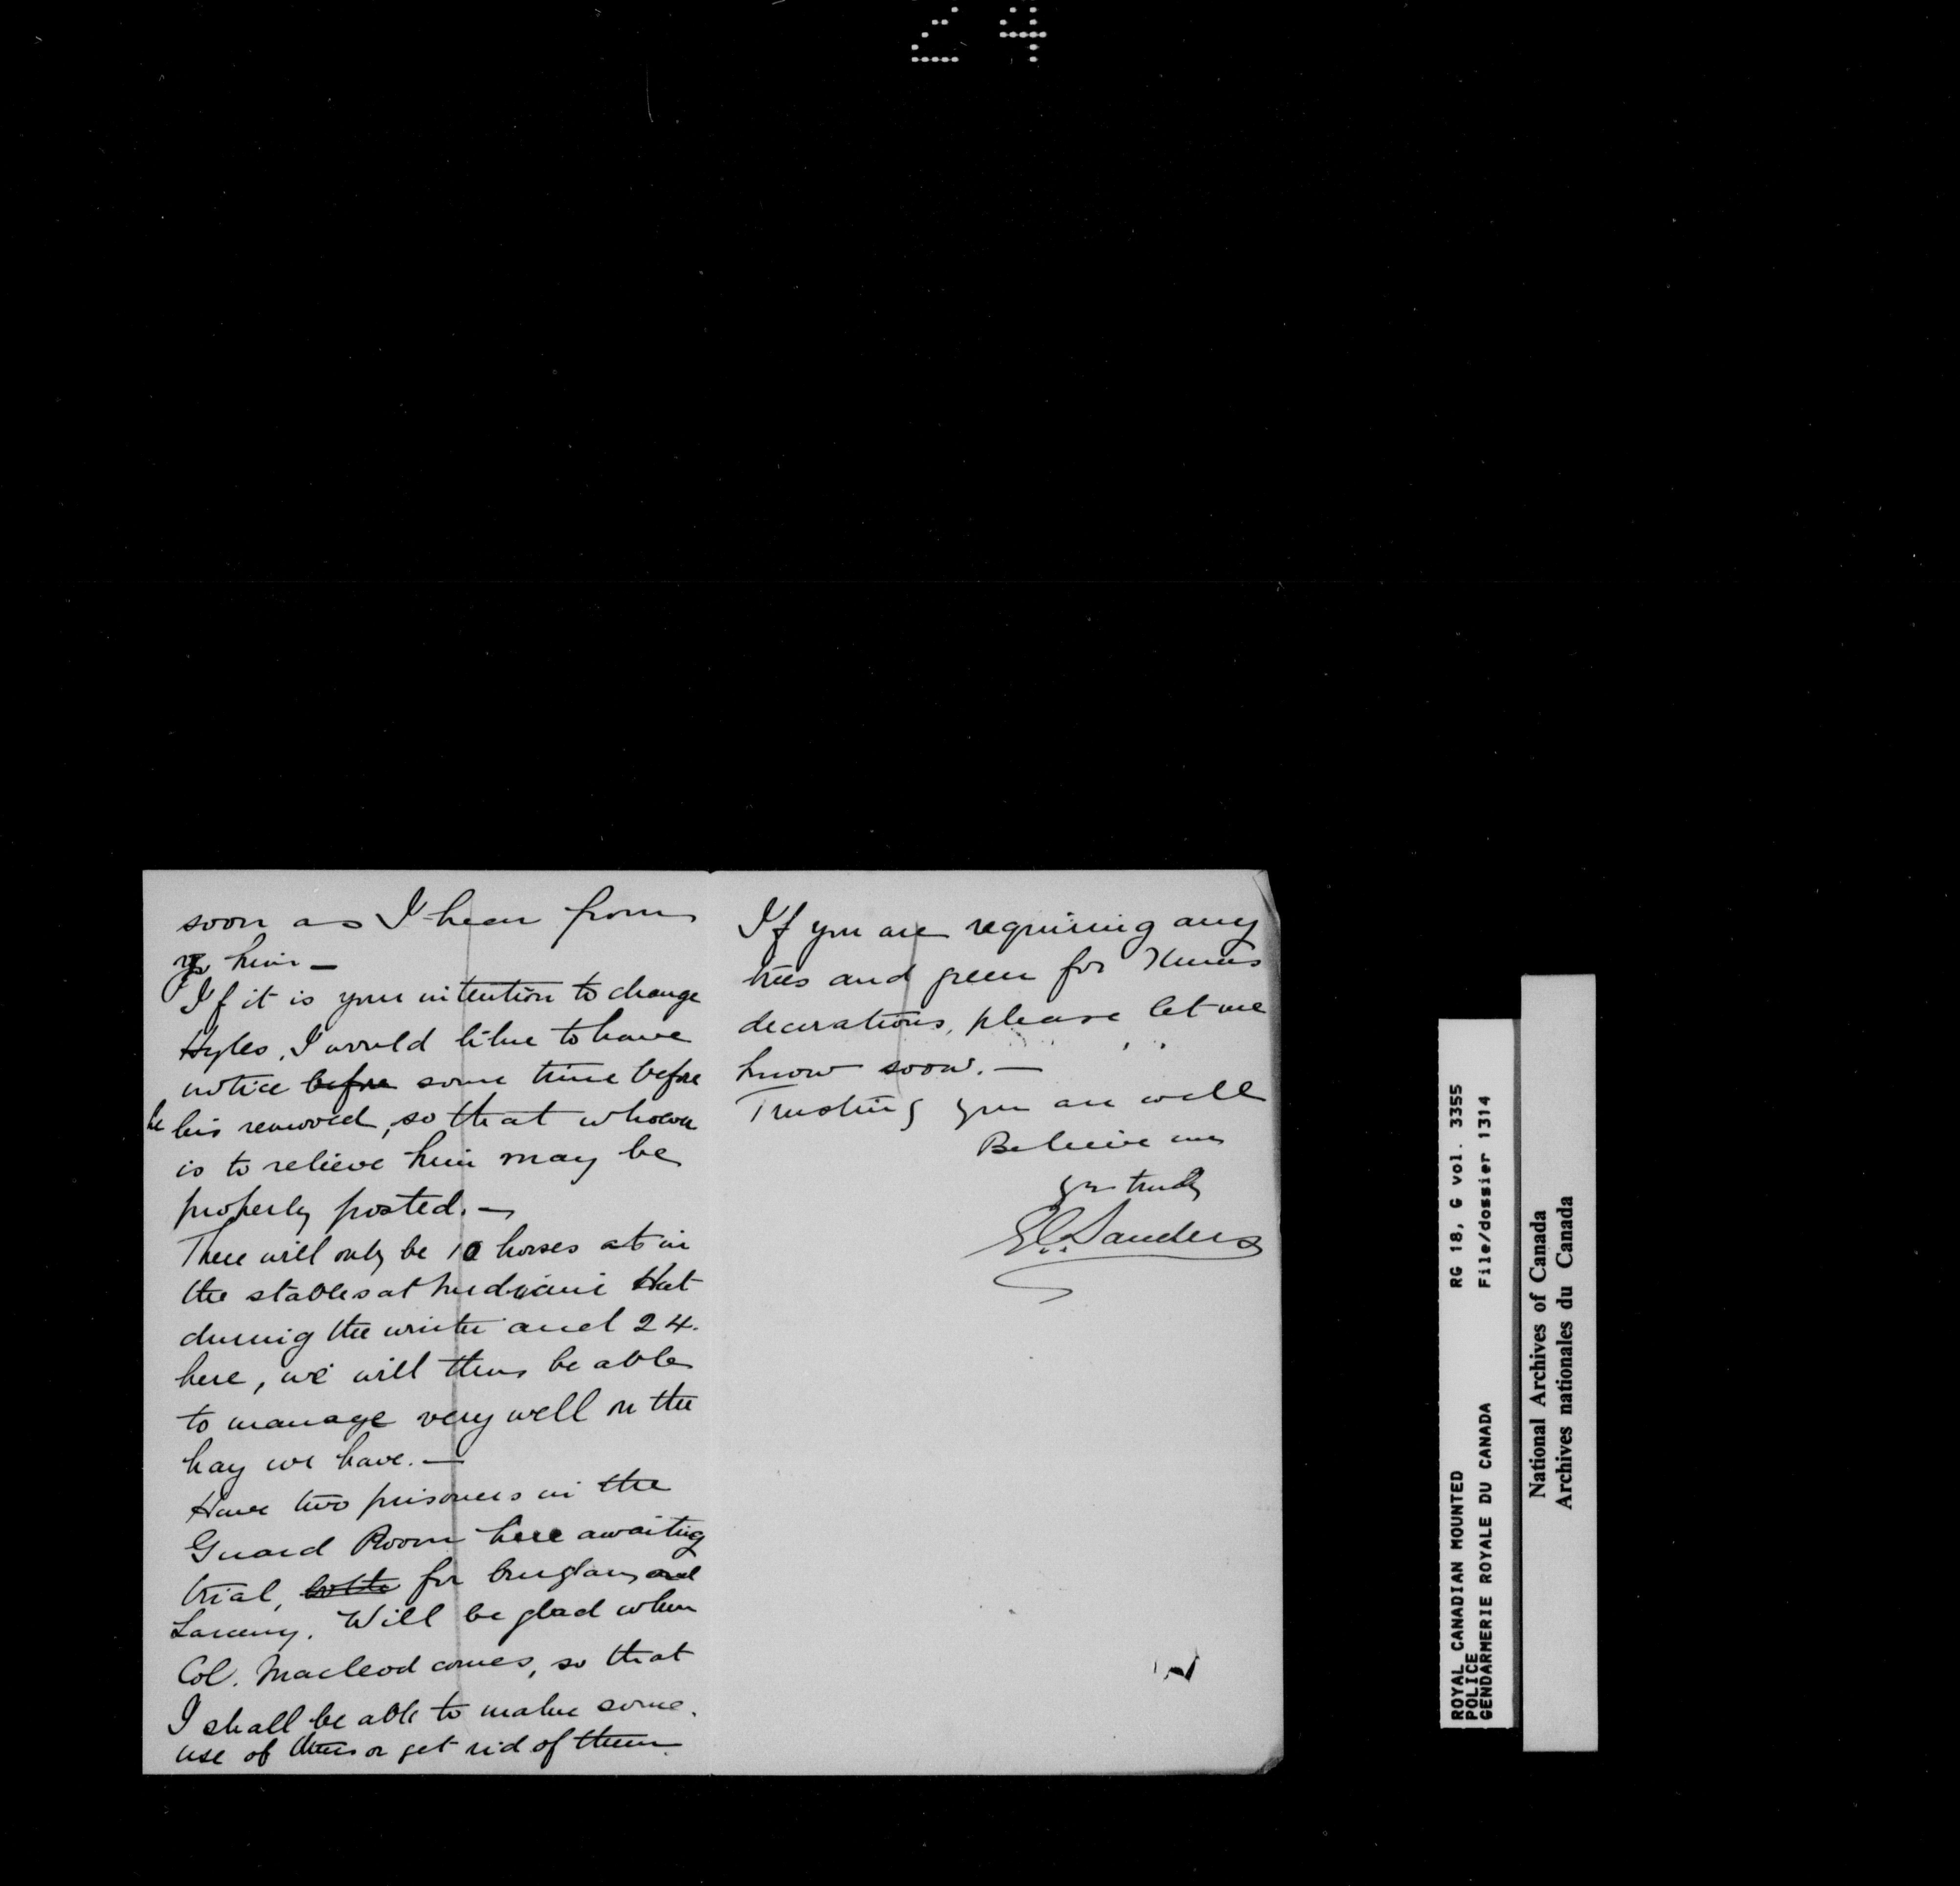 24
soon as I hear from
him —
If it is your intention to change
Hyles, I would like to have
notice before some time before
he his removed, so that whoever
is to relieve him may be
properly posted. —
There will only be 10 horses at in
the stables at Medicine Hat
during the winter and 24.
here, we will thus be able
to manage very well on the
hay we have. —
Have two prisoners in the
Guard Room here awaiting
trial, both for burglary and
Larceny. Will be glad when
Col. Macleod comes, so that
I shall be able to make some.
use of them or get rid of them.
If you are requiring any
trees and green for Xmas
decorations, please let me
know soon. —
Trusting you are well
Believe me
yrs truly
G.E. Sanders
ROYAL CANADIAN MOUNTED RG 18, G vol. 3355
POLICE File/dossier 1314
GENDARMERIE ROYALE DU CANADA
National Archives of Canada
Archives nationales du Canada